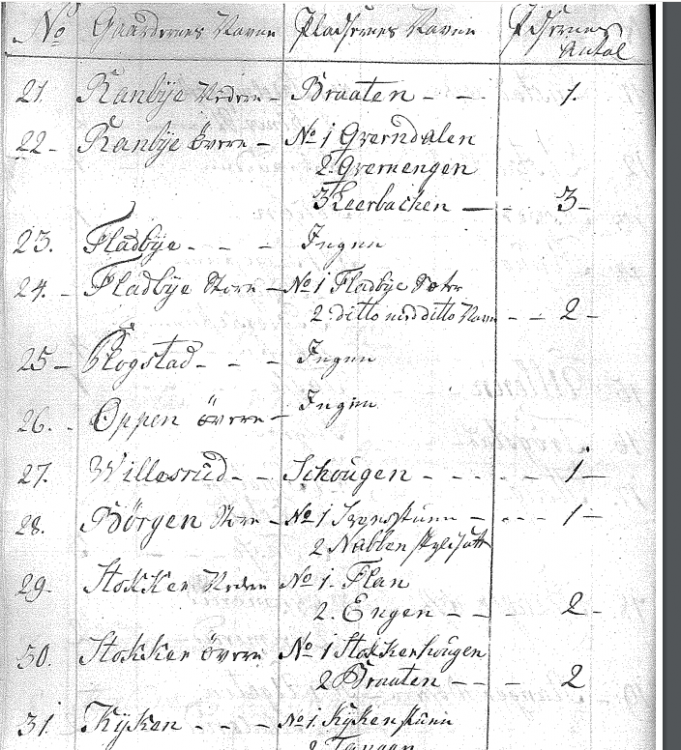 No Gaardernes Navne Pladsernes Navne Pdsernes Antal
21. Ranbÿe Nedere - Braaten - - 1.
22 - Ranbÿe övere - No 1 Qverndalen
2. Qvernengen
3 Keerbacken - 3 -
23. Fladbÿe - - - Ingen
24. - Fladbÿe Store - No 1 Fladbye Sæter
2. ditto med ditto Navn - - 2 -
25 - Skogstad - - - Ingen
26. - Oppen övere - Ingen
27. Willesrud - - Schougen - - - - 1 -
28. Börgen Store - No 1 - - - - 1 -
2. Nabben
29. Stokker Nedere No 1. Flan
2. Engen - - - 2 -
30. Stokker övere No 1 Stokkerhougen
2 Braaten - - - 2
31. Kÿken - - - No 1. Kÿken
2 Tangen